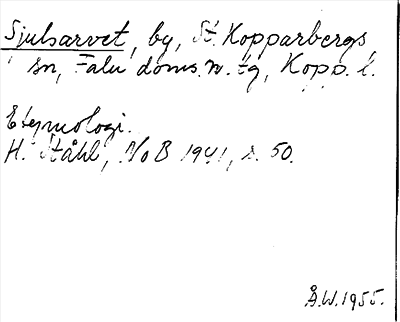 Sjulsarvet, by, St. Kopparbergs
sn, Falu doms. o. tg, Kopp. l.
Etymologi.
H. Ståhl, NoB 1941, s. 50.
Å.W. 1955.